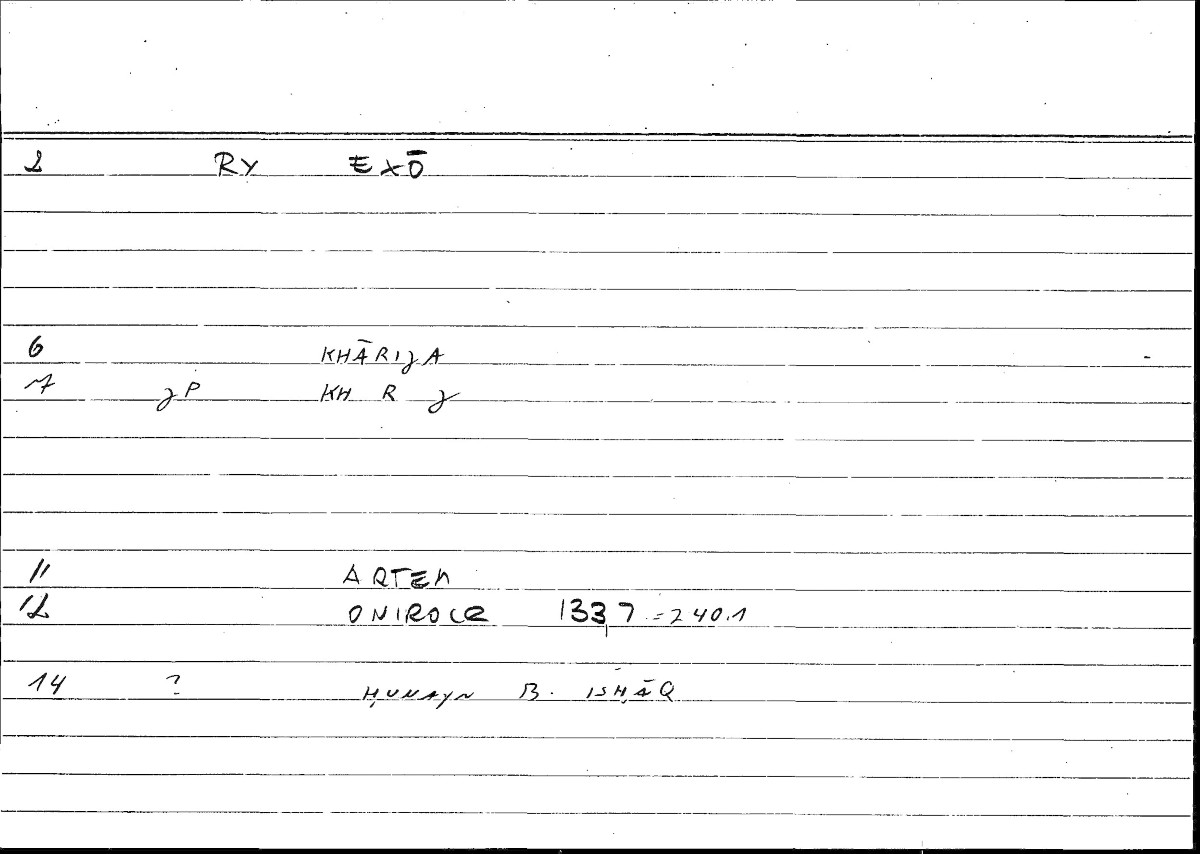 2 RY EXŌ
6 KHĀRIJA
7 JP KH R J
11 ARTEM
12 ONIROCR 1337,=240.1
14 ? ḤUNAYN B. ISḤĀQ